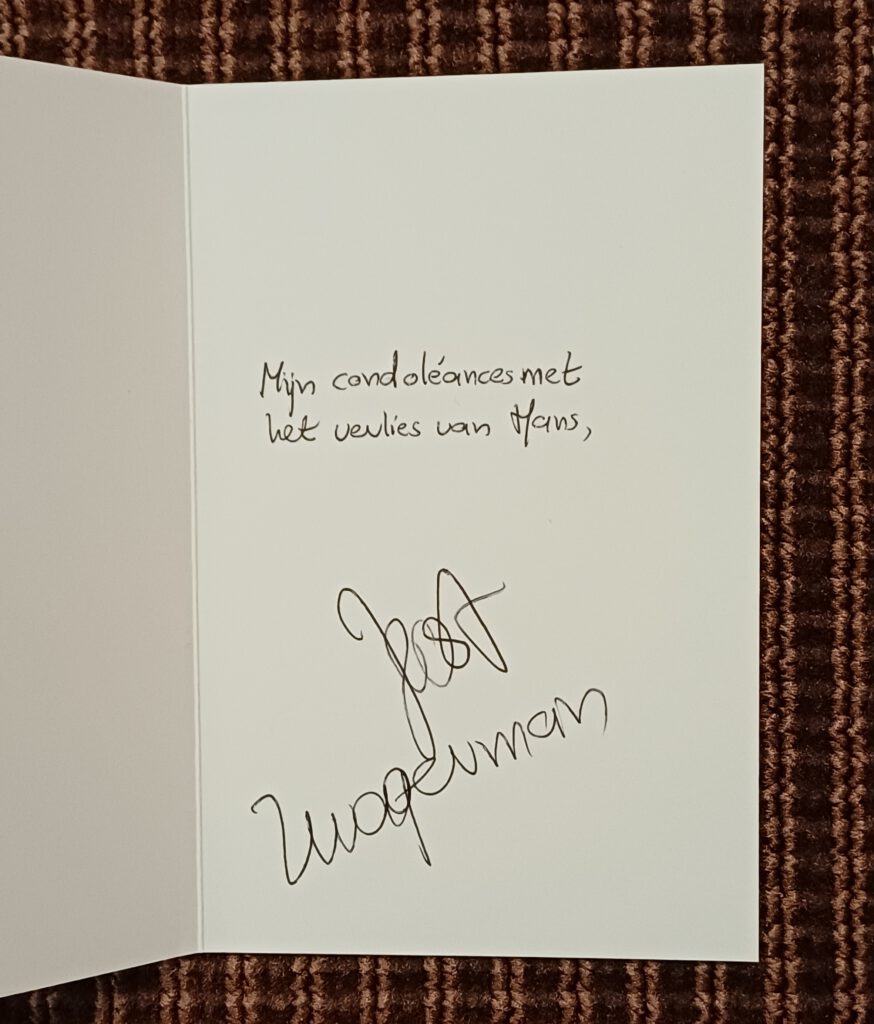 Mijn condoléances met
het verlies van Hans,
Joost
Zwagerman